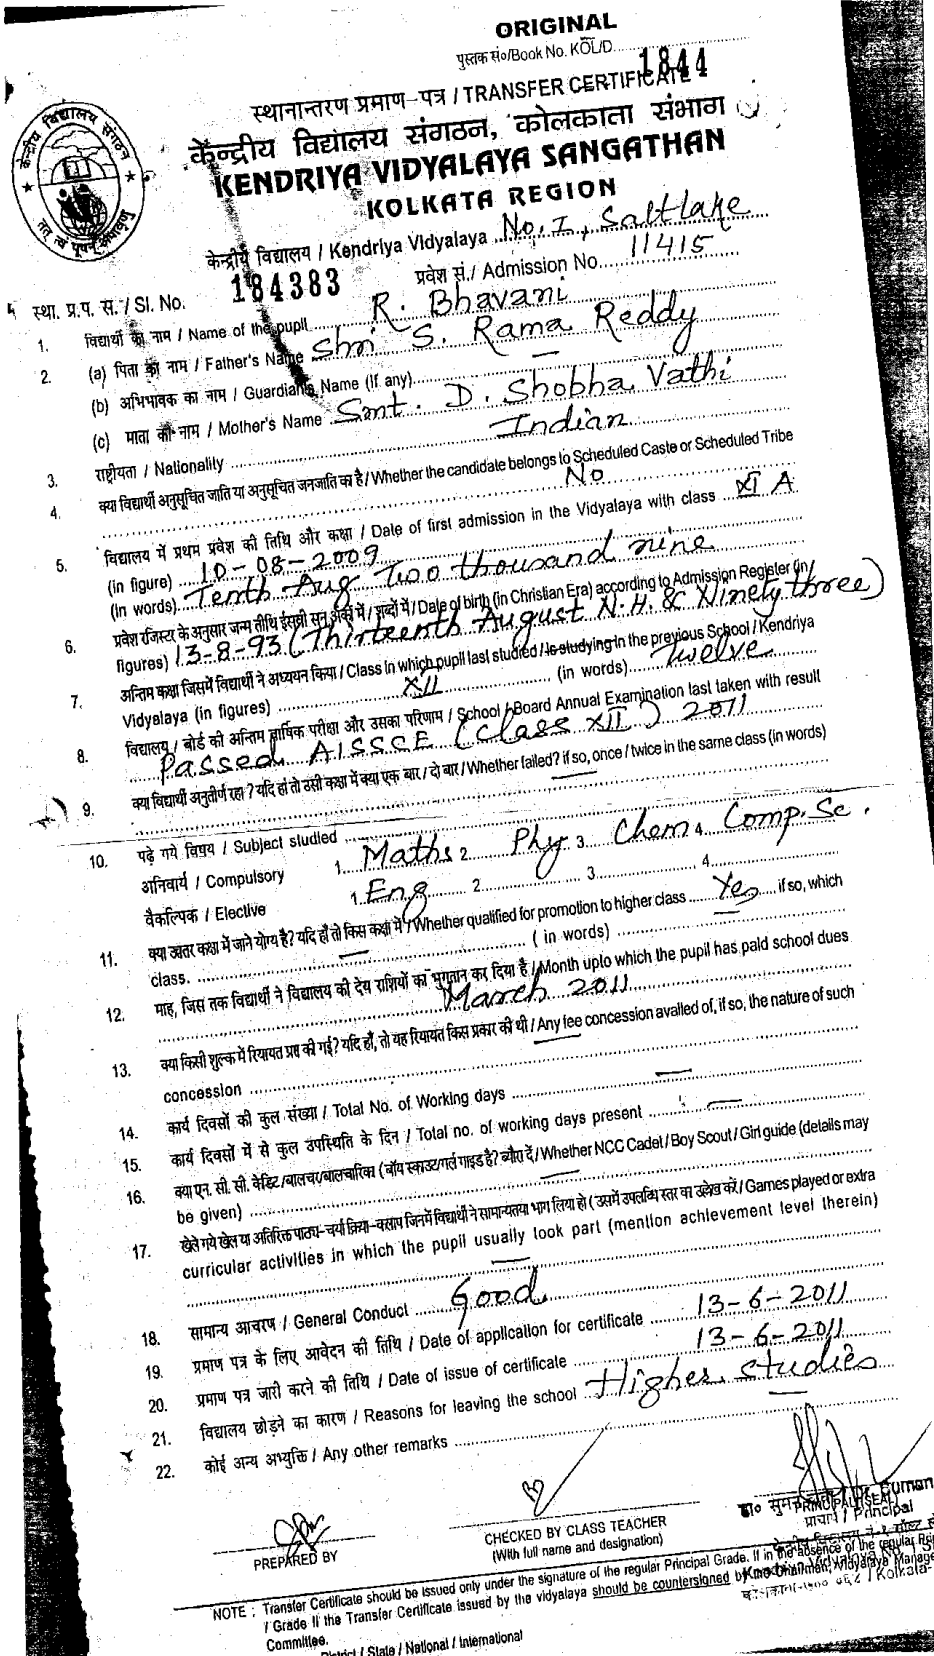 ORIGINAL
पुस्तक सं०/Book No. KOL/D
1844
स्थानान्तरण प्रमाण-पत्र / TRANSFER CERTIFICATE
केन्द्रीय विद्यालय संगठन, कोलकाता संभाग
KENDRIYA VIDYALAYA SANGATHAN
KOLKATA REGION
केन्द्रीय विद्यालय संगठन
तत् त्वं पूषन् अपावृणु
केन्द्रीय विद्यालय / Kendriya Vidyalaya No. I, Saltlake
स्था. प्र.प. स. / SI. No. 184383 प्रवेश सं./ Admission No. 11415
1. विद्यार्थी का नाम / Name of the pupil R. Bhavani
2. (a) पिता का नाम / Father's Name Shri S. Rama Reddy
(b) अभिभावक का नाम / Guardian's Name (If any) —
(c) माता का नाम / Mother's Name Smt. D. Shobha Vathi
3. राष्ट्रीयता / Nationality Indian
4. क्या विद्यार्थी अनुसूचित जाति या अनुसूचित जनजाति का है / Whether the candidate belongs to Scheduled Caste or Scheduled Tribe
No
5. विद्यालय में प्रथम प्रवेश की तिथि और कक्षा / Date of first admission in the Vidyalaya with class XI A
(in figure) 10-08-2009
(in words) Tenth Aug Two thousand nine
6. प्रवेश रजिस्टर के अनुसार जन्म तीथि ईसवी सन् अंकों में / शब्दों में / Date of birth (in Christian Era) according to Admission Register (in
figures) 13-8-93 (Thirteenth August N.H. & Ninety three)
7. अन्तिम कक्षा जिसमें विद्यार्थी ने अध्ययन किया / Class in which pupil last studied / Is studying in the previous School / Kendriya
Vidyalaya (in figures) XII (in words) Twelve
8. विद्यालय / बोर्ड की अन्तिम वार्षिक परीक्षा और उसका परिणाम / School / Board Annual Examination last taken with result
Passed AISSCE (Class XII) 2011
9. क्या विद्यार्थी अनुतीर्ण रहा ? यदि हां तो उसी कक्षा में क्या एक बार / दो बार / Whether failed? if so, once / twice in the same class (in words)
—
10. पढ़े गये विषय / Subject studied
अनिवार्य / Compulsory 1. Maths 2. Phy 3. Chem 4. Comp. Sc.
वैकल्पिक / Elective 1. Eng 2. 3. 4.
11. क्या उच्चतर कक्षा में जाने योग्य है? यदि हाँ तो किस कक्षा में / Whether qualified for promotion to higher class Yes if so, which
class. — ( in words) —
12. माह, जिस तक विद्यार्थी ने विद्यालय की देय राशियों का भुगतान कर दिया है / Month upto which the pupil has paid school dues
March 2011
13. क्या किसी शुल्क में रियायत प्राप्त की गई? यदि हाँ, तो यह रियायत किस प्रकार की थी / Any fee concession availed of, if so, the nature of such
concession —
14. कार्य दिवसों की कुल संख्या / Total No. of Working days —
15. कार्य दिवसों में से कुल उपस्थिति के दिन / Total no. of working days present —
16. क्या एन. सी. सी. केडिट/बालचर/बालचारिका (बॉय स्काउट/गर्ल गाइड है? ब्यौरा दें / Whether NCC Cadet / Boy Scout / Girl guide (details may
be given)
17. खेले गये खेल या अतिरिक्त पाठ्य-चर्या क्रिया-कलाप जिनमें विद्यार्थी ने सामान्यतया भाग लिया हो ( उसमें उपलब्धि स्तर का उल्लेख करें / Games played or extra
curricular activities in which the pupil usually took part (mention achievement level therein)
—
18. सामान्य आचरण / General Conduct Good
19. प्रमाण पत्र के लिए आवेदन की तिथि / Date of application for certificate 13-6-2011
20. प्रमाण पत्र जारी करने की तिथि / Date of issue of certificate 13-6-2011
21. विद्यालय छोड़ने का कारण / Reasons for leaving the school Higher studies
22. कोई अन्य अभ्युक्ति / Any other remarks —
PREPARED BY
CHECKED BY CLASS TEACHER
(With full name and designation)
डा० सुमन
PRINCIPAL (SEAL)
प्राचार्य / Principal
NOTE : Transfer Certificate should be issued only under the signature of the regular Principal Grade. If in the absence of the regular
/ Grade II the Transfer Certificate issued by the vidyalaya should be countersigned by the Chairman, Vidyalaya
Committee.
District / State / National / International